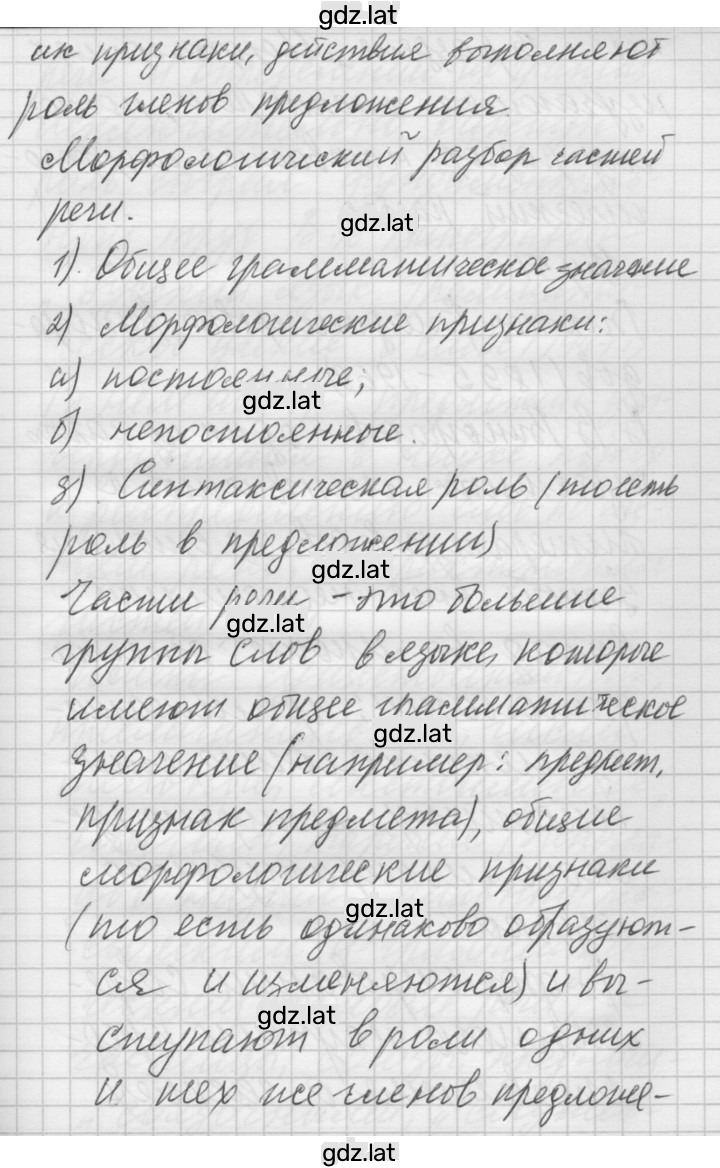 gdz.lat
их признаки, действия выполняют
роль членов предложения.
Морфологический разбор частей
речи.
gdz.lat
1). Общее грамматическое значение
2) Морфологические признаки:
а) постоянные;
gdz.lat
б) непостоянные.
3) Синтаксическая роль (то есть
роль в предложении)
gdz.lat
Части речи - это большие
gdz.lat
группы слов в языке, которые
имеют общее грамматическое
gdz.lat
значение (например: предмет,
признак предмета), общие
морфологические признаки
gdz.lat
(то есть одинаково образуют-
ся и изменяются) и вы-
gdz.lat
ступают в роли одних
и тех же членов предложе-
gdz.lat